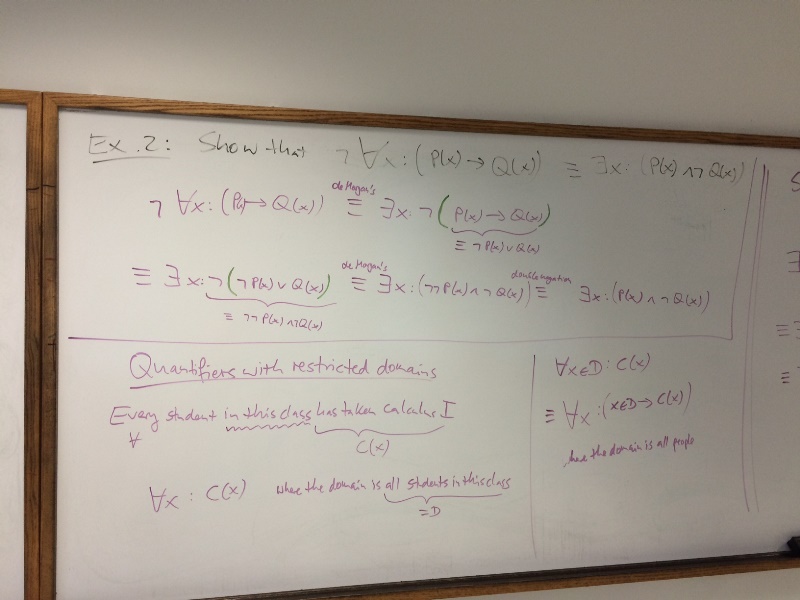 Ex. 2: Show that ¬∀x:(P(x)→Q(x)) ≡ ∃x:(P(x)∧¬Q(x))
¬∀x:(P(x)→Q(x)) ≡ ∃x:¬(P(x)→Q(x))
de Morgan's
≡ ¬P(x)∨Q(x)
≡ ∃x:¬(¬P(x)∨Q(x)) ≡ ∃x:(¬¬P(x)∧¬Q(x)) ≡ ∃x:(P(x)∧¬Q(x))
de Morgan's double negation
≡ ¬¬P(x)∧¬Q(x)
Quantifiers with restricted domains
Every student in this class has taken calculus I
∀ C(x)
∀x: C(x) where the domain is all students in this class
=D
∀x∈D: C(x)
≡ ∀x:(x∈D→C(x))
here the domain is all people